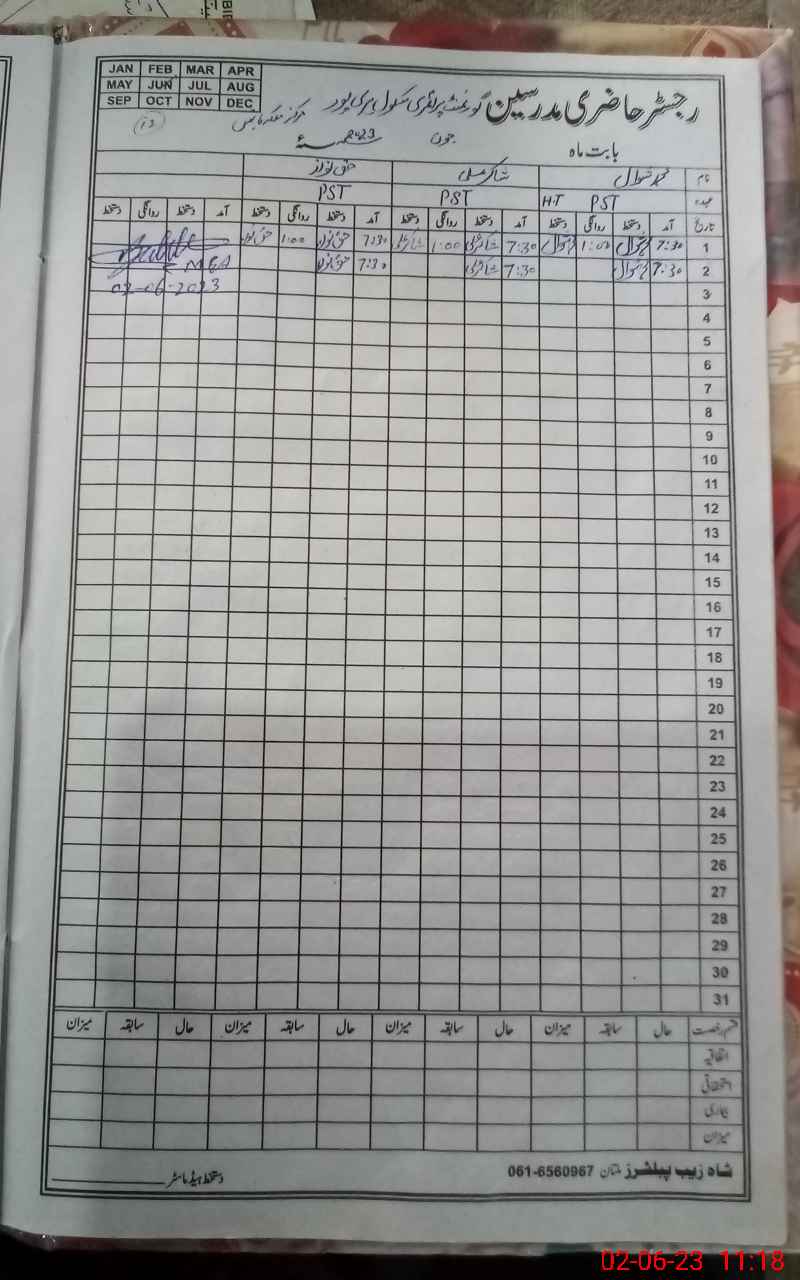 JAN FEB MAR APR
MAY JUN JUL AUG
SEP OCT NOV DEC
رجسٹر حاضری مدرسین گورنمنٹ پرائمری سکول ہری پور مرکز
بابت ماہ جون 2023ء
نام محمد نوال شاکر علی حق نواز
عہدہ H.T PST PST PST
تاریخ آمد دستخط روانگی دستخط آمد دستخط روانگی دستخط آمد دستخط روانگی دستخط آمد دستخط روانگی دستخط
1 7:30 1:00 7:30 شاکر علی 1:00 شاکر علی 7:30 حق نواز 1:00 حق نواز
2 7:30 7:30 شاکر علی 7:30 حق نواز
MEA
3 02-06-2023
4
5
6
7
8
9
10
11
12
13
14
15
16
17
18
19
20
21
22
23
24
25
26
27
28
29
30
31
قسم رخصت حال سابقہ میزان حال سابقہ میزان حال سابقہ میزان حال سابقہ میزان
اتفاقیہ
استحقاقی
بیماری
میزان
شاہ زیب پبلشرز ملتان 061-6560967 دستخط ہیڈ ماسٹر
02-06-23 11:18